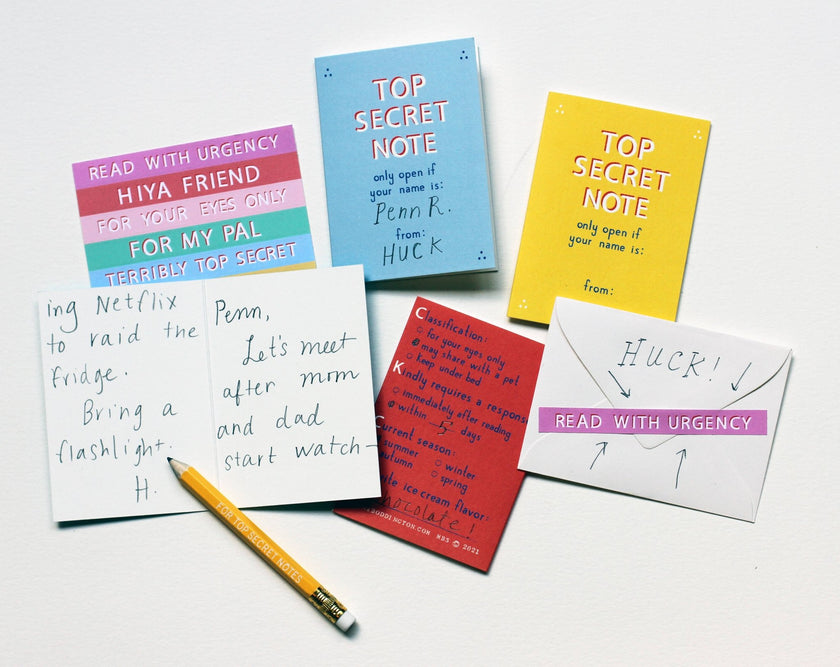 READ WITH URGENCY
HIYA FRIEND
FOR YOUR EYES ONLY
FOR MY PAL
TERRIBLY TOP SECRET
TOP
SECRET
NOTE
only open if
your name is:
Penn R.
from:
HUCK
TOP
SECRET
NOTE
only open if
your name is:
from:
ing Netflix
to raid the
fridge.
Bring a
flashlight.
H.
Penn,
Let's meet
after mom
and dad
start watch-
FOR TOP SECRET NOTES
Classification:
for your eyes only
may share with a pet
keep under bed
Kindly requires a respons
immediately after reading
within 5 days
Current season:
summer
winter
autumn
spring
ice cream flavor:
chocolate!
ODDINGTON.COM #85 © 2021
HUCK!
READ WITH URGENCY